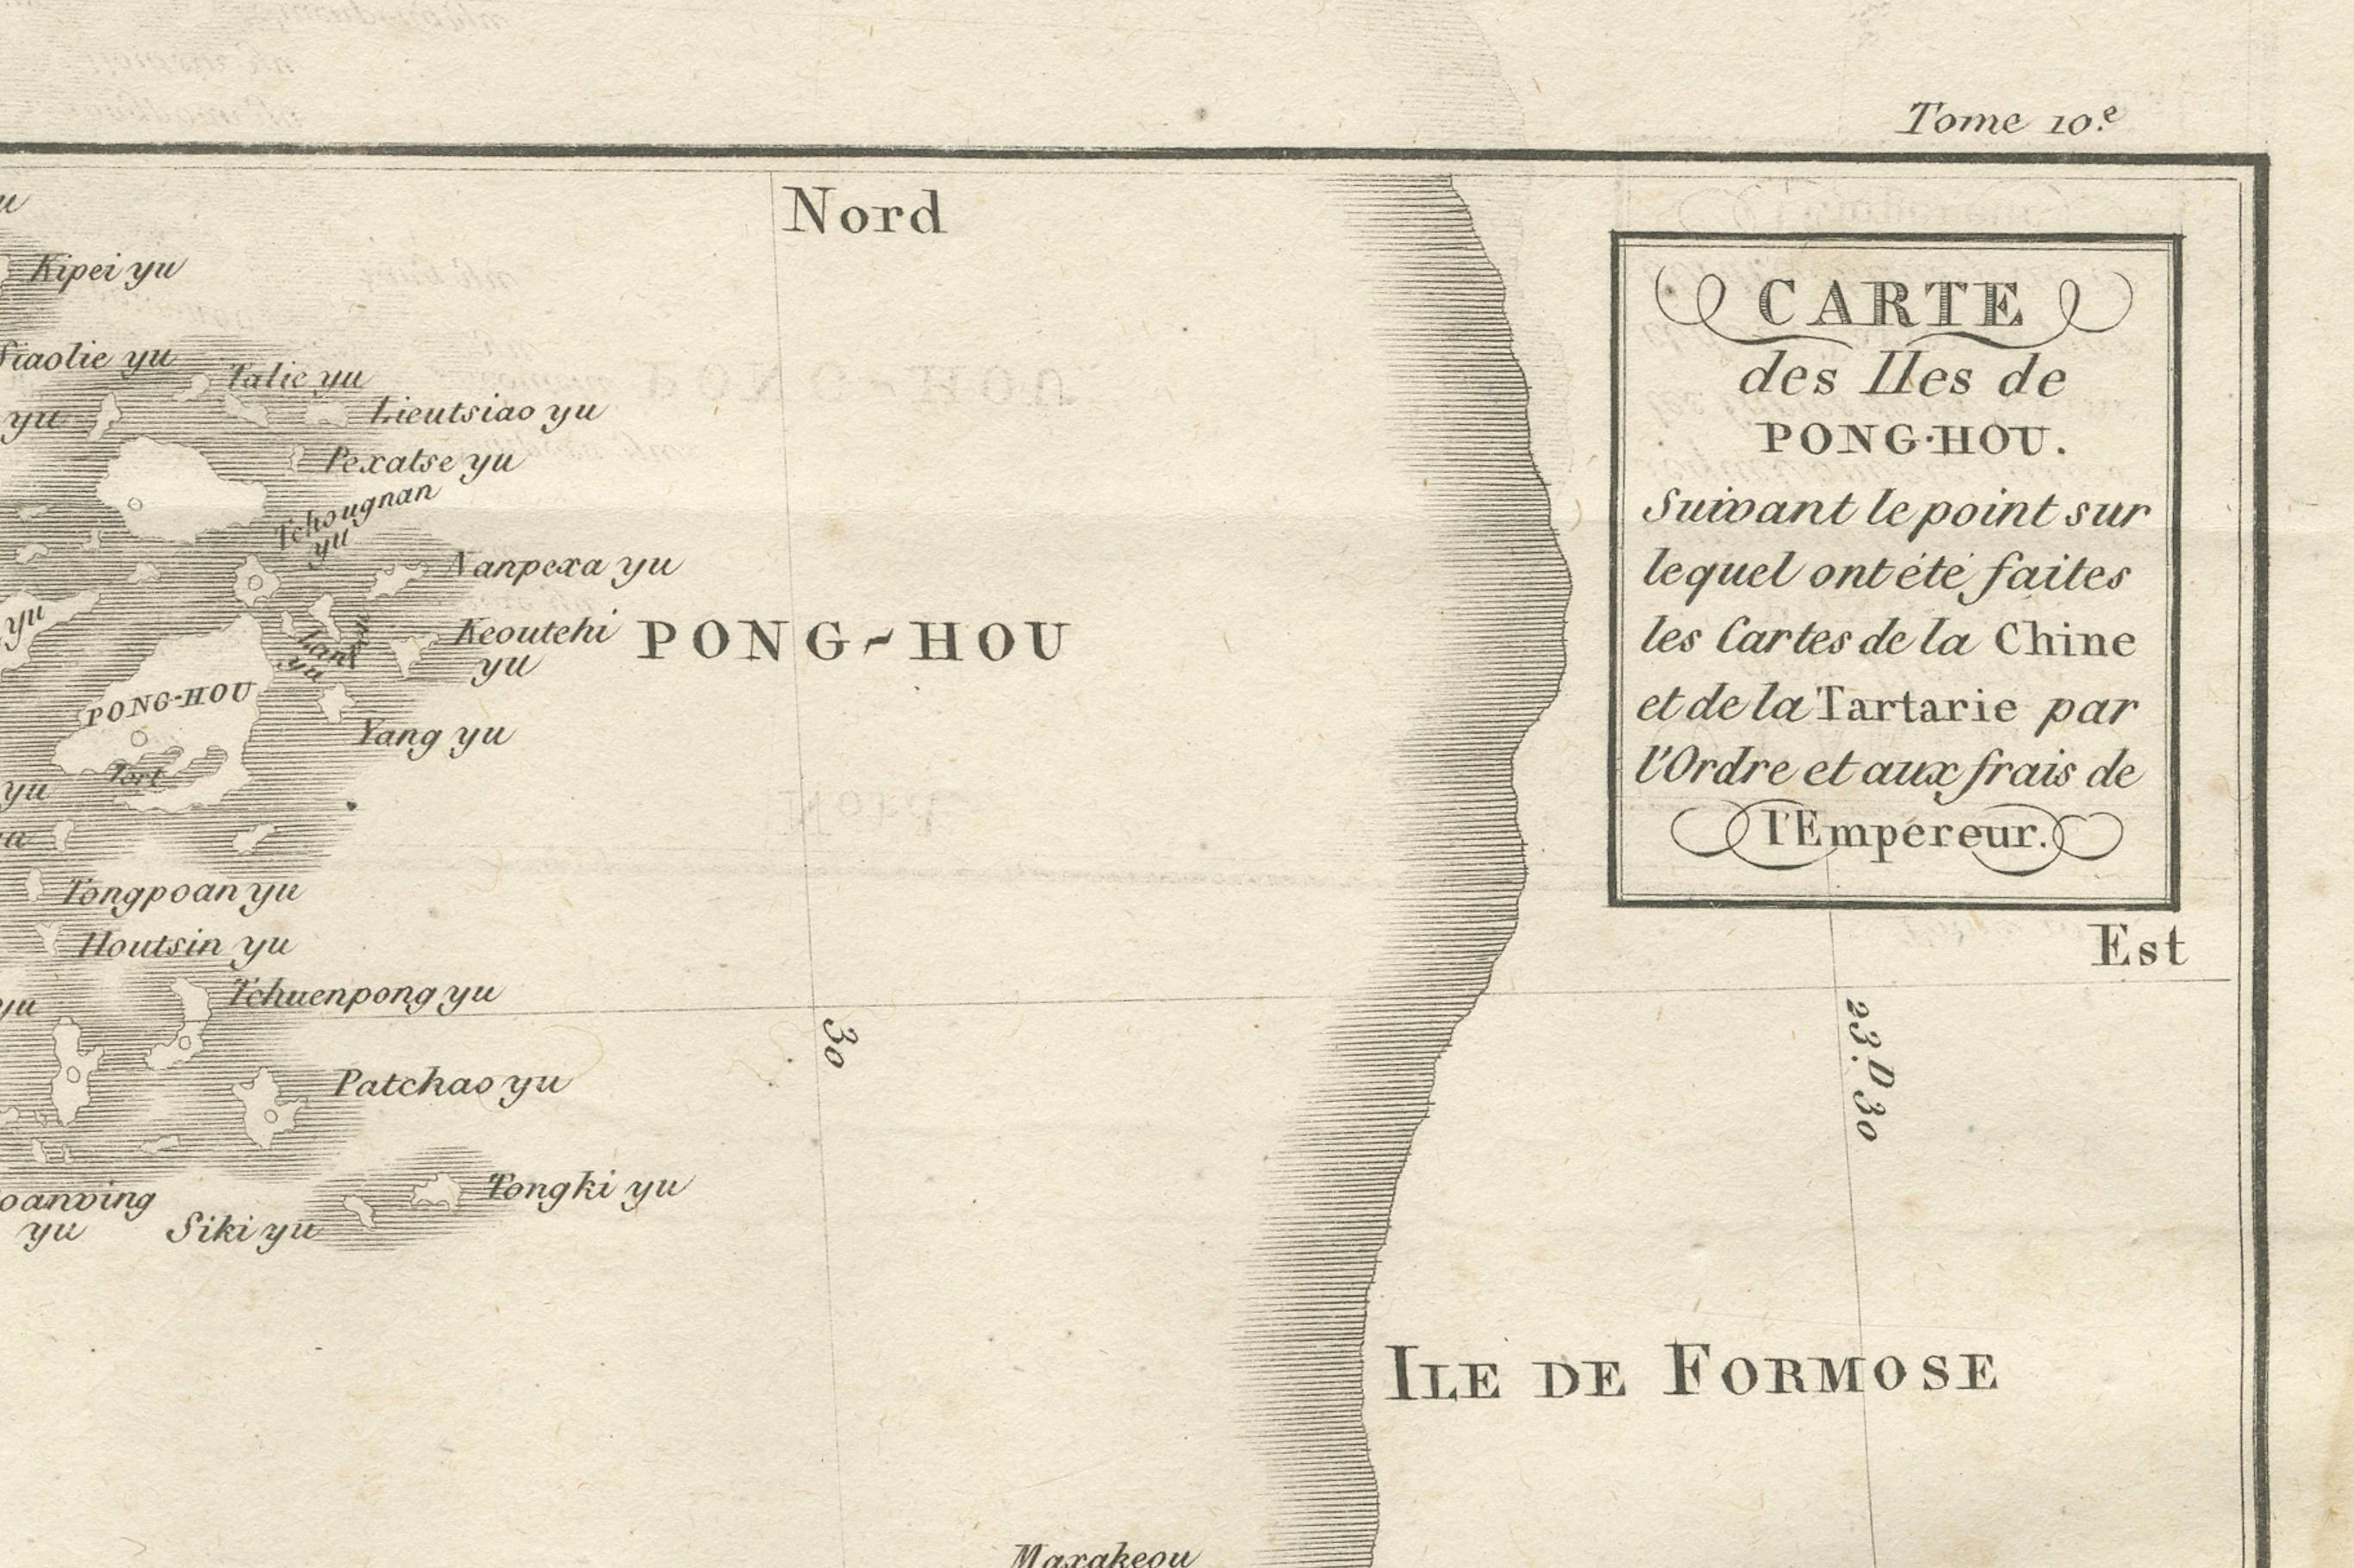 Tome 10.e
Nord
Kipei yu
Siaolie yu
Talie yu
yu
Lieutsiao yu
Pexatse yu
Tchougnan
yu
Nanpexa yu
yu
Keoutchi
yu
PONG-HOU
PONG-HOU
Yang yu
Fort
yu
Tongpoan yu
Houtsin yu
yu
Tchuenpong yu
30
Patchao yu
Tongki yu
yu
Siki yu
CARTE
des Iles de
PONG-HOU.
Suivant le point sur
lequel ont été faites
les Cartes de la Chine
et de la Tartarie par
l'Ordre et aux frais de
l'Empereur.
Est
23.D 30
ILE DE FORMOSE
Maxakeou